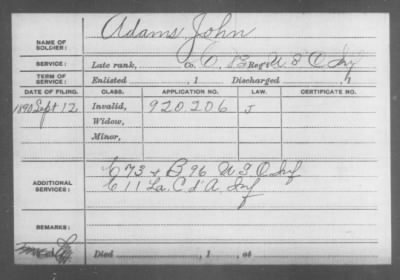 NAME OF SOLDIER: Adams, John
SERVICE: Late rank, Co. C, 83 Reg't U S C Inf
TERM OF SERVICE: Enlisted , 1 Discharged , 1
DATE OF FILING. CLASS. APPLICATION NO. LAW. CERTIFICATE NO.
1890 Sept 12 Invalid, 920,206 J
Widow,
Minor,
ADDITIONAL SERVICES: C 73 & B 96 U S C Inf
C 11 La. C d'A. Inf
REMARKS:
Died , 1 , at